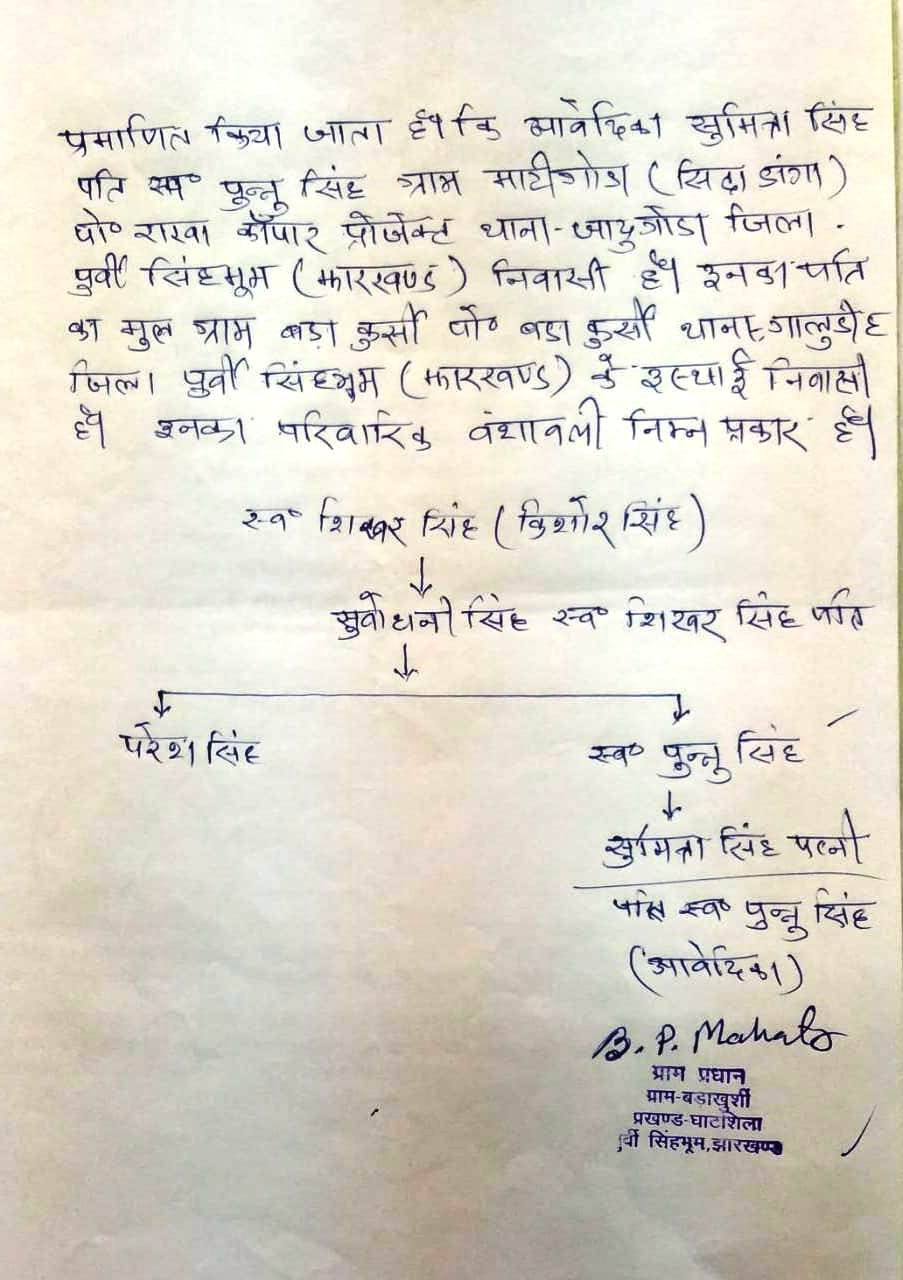 प्रमाणित किया जाता है कि आवेदिका सुमित्रा सिंह
पति स्व॰ पुन्नु सिंह ग्राम माटीगोडा (सिदाडांगा)
पो॰ राखा कॉपार प्रोजेक्ट थाना-जादुगोडा जिला.
पुर्वी सिंहभूम (झारखण्ड) निवासी है। इनका पति
का मुल ग्राम बड़ा कुर्सी पो॰ बडा कुर्सी थाना, गालुडीह
जिला पुर्वी सिंहभूम (झारखण्ड) के इस्थाई निवासी
है। इनका परिवारिक वंशावली निम्न प्रकार है।
स्व॰ शिखर सिंह (किशोर सिंह)
सुवोधनी सिंह स्व॰ शिखर सिंह पति
परेश सिंह स्व॰ पुन्नु सिंह
सुमित्रा सिंह पत्नी
पति स्व॰ पुन्नु सिंह
(आवेदिका)
B. P. Mahato
ग्राम प्रधान
ग्राम-बडाखुर्शी
प्रखण्ड-घाटशिला
र्वी सिंहभूम, झारखण्ड